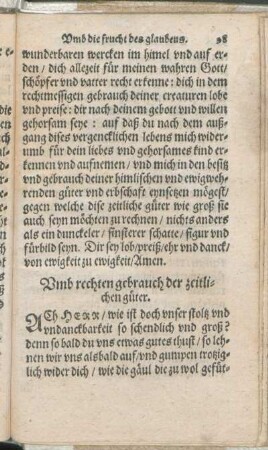 Vmb die frucht des glaubens. 98
wunderbaren wercken im himel vnd auf er-
den / dich allezeit für meinen wahren Gott/
schöpfer vnd vatter recht erkenne: dich in dem
rechtmessigen gebrauch deiner creaturen lobe
vnd preise: dir nach deinem gebott vnd willen
gehorsam seye: auf daß du nach dem auß-
gang dises vergencklichen lebens mich wider-
umb für dein liebes vnd gehorsames kind er-
kennen vnd aufnemen / vnd mich in den besitz
vnd gebrauch deiner himlischen vnd ewigweh-
renden güter vnd erbschafe eynsetzen mögest/
gegen welche dise zeitliche güter wie groß sie
auch seyn möchten zu rechnen / nichts anders
als ein dunckeler / finsterer schatte / figur vnd
fürbild seyn. Dir sey lob/preiß/ehr vnd danck/
von ewigkeit zu ewigkeit/Amen.
Vmb rechten gebrauch der zeitli-
chen güter.
ACh HERR/wie ist doch vnser stoltz vnd
vndanckbarkeit so schendlich vnd groß?
denn so bald du vns etwas gutes thust / so leh-
nen wir vns alsbald auf/vnd gumpen trotzig-
lich wider dich / wie die gäul die zu wol gefüt-